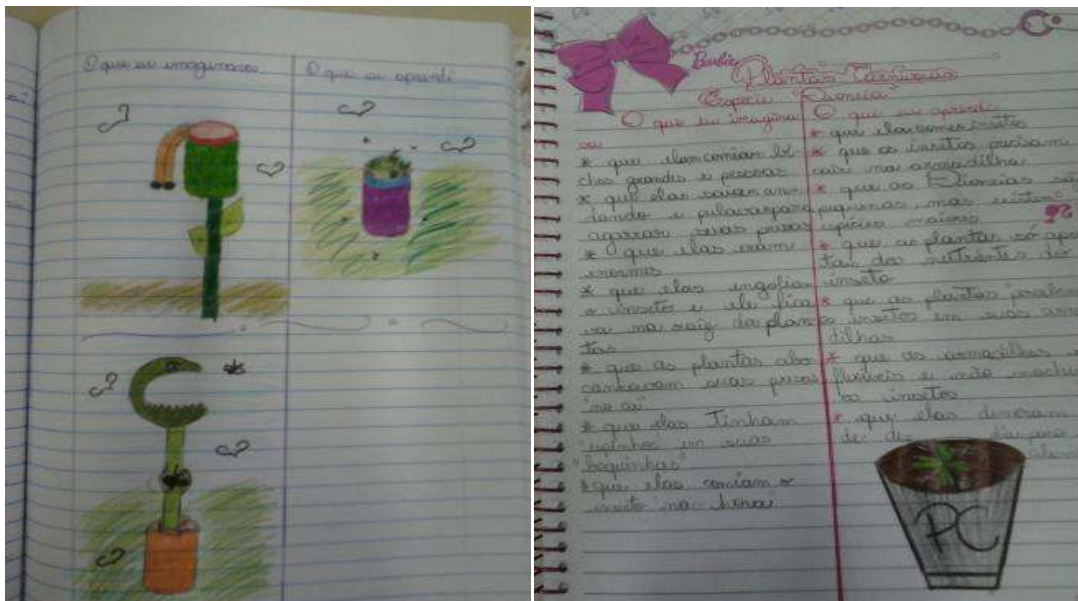 O que eu imaginava
O que eu aprendi
Barbie
Plantas Carnívoras
Espécie "Dioneia"
O que eu imagina
va
* que elas comiam bi
chos grandes e pessoas
* que elas saiam an-
dando e pulavam para
agarrar suas presas
* O que elas eram
enormes
* que elas engoliam
o inseto e ele fica
va na raiz da plan
tas
* que as plantas abo
canhavam suas presas
"no ar"
* que elas tinham
em suas
"boquinhas"
* que elas comiam o
inseto na hora
O que eu aprendi
* que elas comem insetos
* que os insetos precisam
cair na armadilha
* que as Dioneias são
pequenas, mas existem
espécies maiores
* que as plantas só apro
tam dos nutrientes do
inseto
* que as plantas
o insetos em suas arma
dilhas
* que as armadilhas
flexíveis e não machu
os insetos
* que elas demoram
de dez dias para
PC